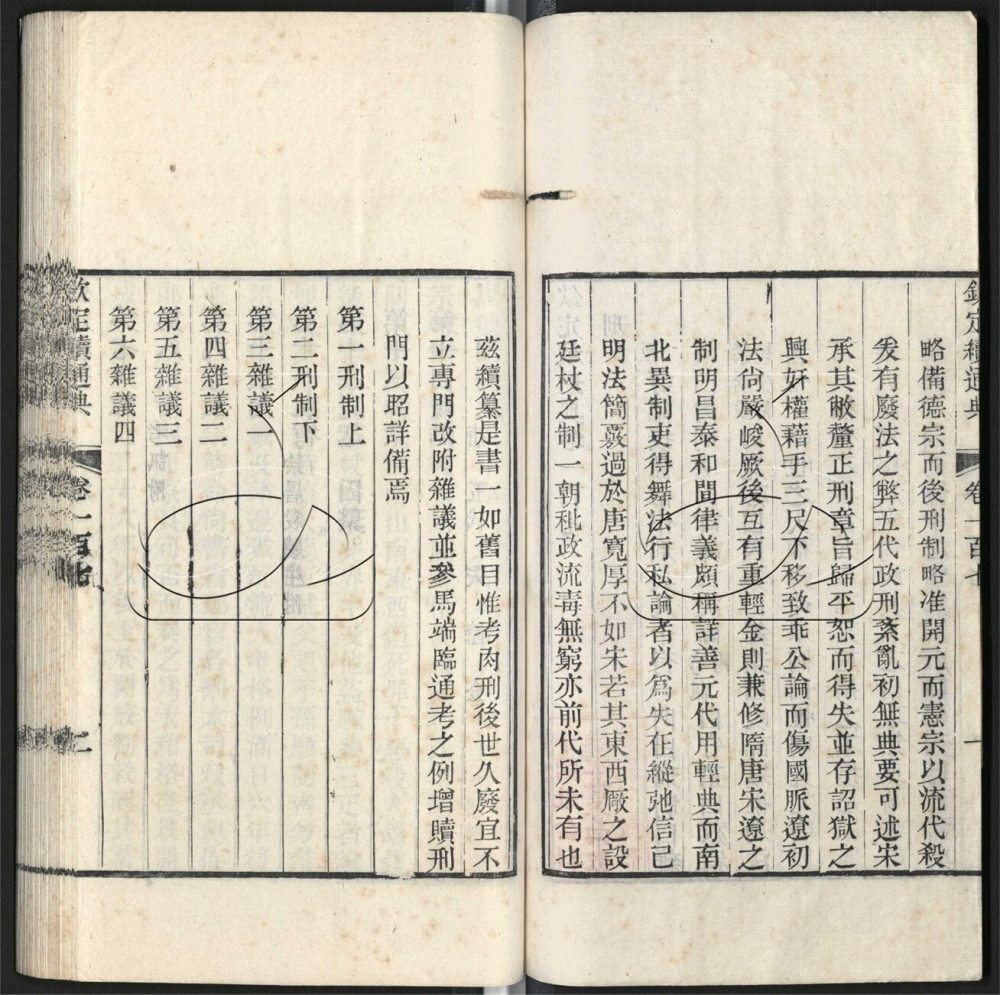 略備德宗而後刑制略准開元而憲宗以流代殺
爰有廢法之弊五代政刑紊亂初無典要可述宋
承其敝釐正刑章旨歸平恕而得失並存詔獄之
興奸權藉手三尺不移致乖公論而傷國脈遼初
法尙嚴峻厥後互有重輕金則兼修隋唐宋遼之
制明昌泰和間律義頗稱詳善元代用輕典而南
北異制吏得舞法行私論者以爲失在縱弛信已
明法簡覈過於唐寬厚不如宋若其東西厰之設
廷杖之制一朝秕政流毒無窮亦前代所未有也
茲續纂是書一如舊目惟考肉刑後世久廢宜不
立專門改附雜議並參馬端臨通考之例增贖刑
門以昭詳備焉
第一刑制上
第二刑制下
第三雜議一
第四雜議二
第五雜議三
第六雜議四
欽定續通典
卷一百七
二